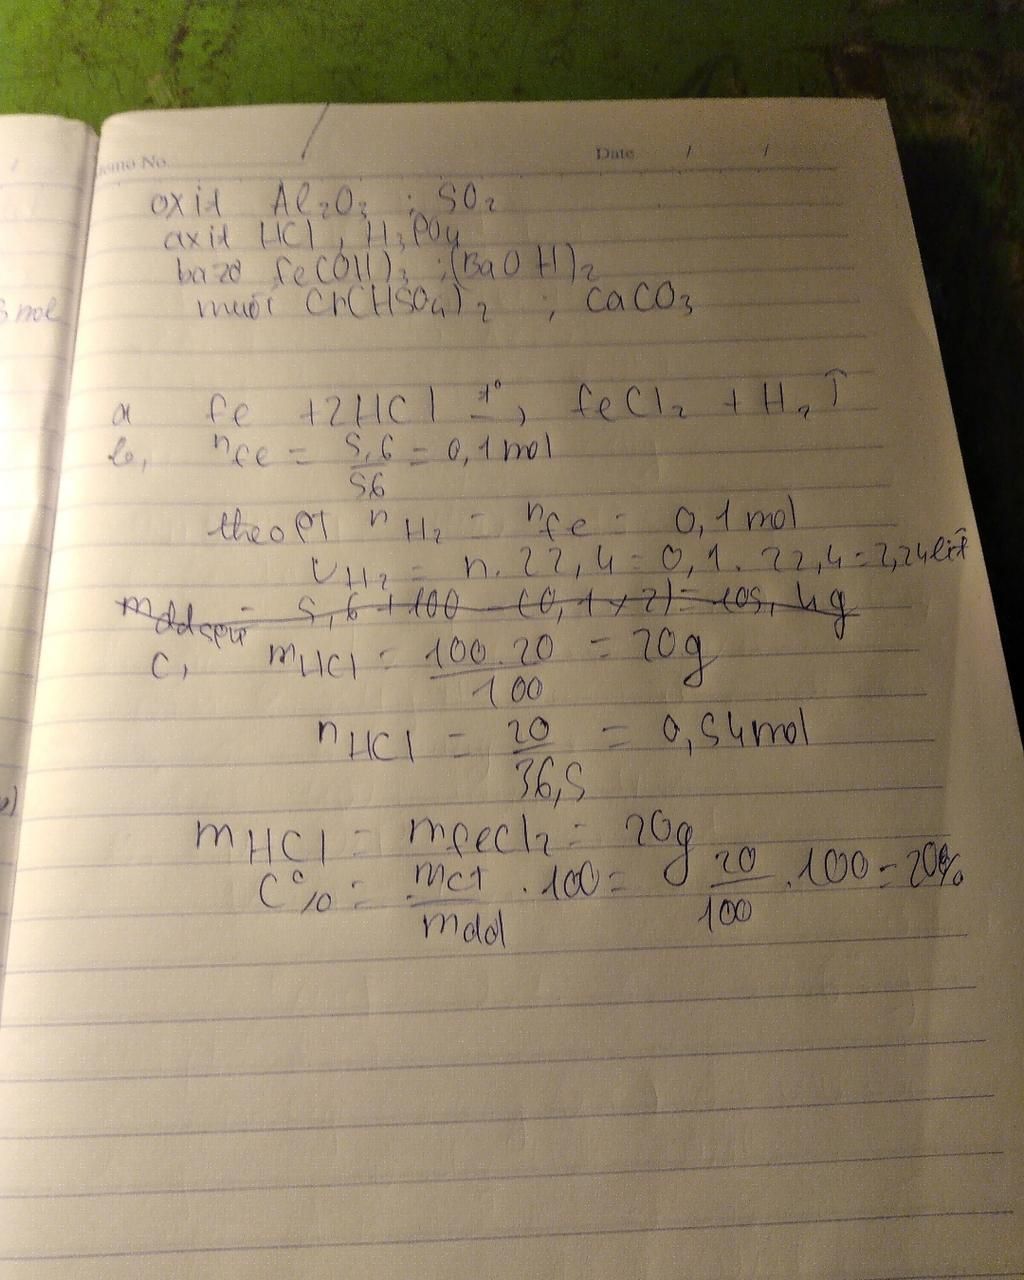 Memo No.
Date / /
oxit Al₂O₃ ; SO₂
axit HCl , H₃PO₄
bazơ Fe(OH)₃ ; (BaOH)₂
muối Cr(HSO₄)₂ ; CaCO₃
3 mol
a Fe + 2HCl t° → FeCl₂ + H₂ ↑
b, nFe = 5,6/56 = 0,1 mol
theo PT nH₂ = nFe = 0,1 mol
VH₂ = n. 22,4 = 0,1. 22,4 = 2,24 lít
mddspư = 5,6 + 100 - (0,1 x 2) = 105,4g
C, mHCl = 100.20/100 = 20g
nHCl = 20/36,5 = 0,54 mol
mHCl = mFeCl₂ = 20g
C% = mct/mdd . 100 = 20/100 . 100 = 20%